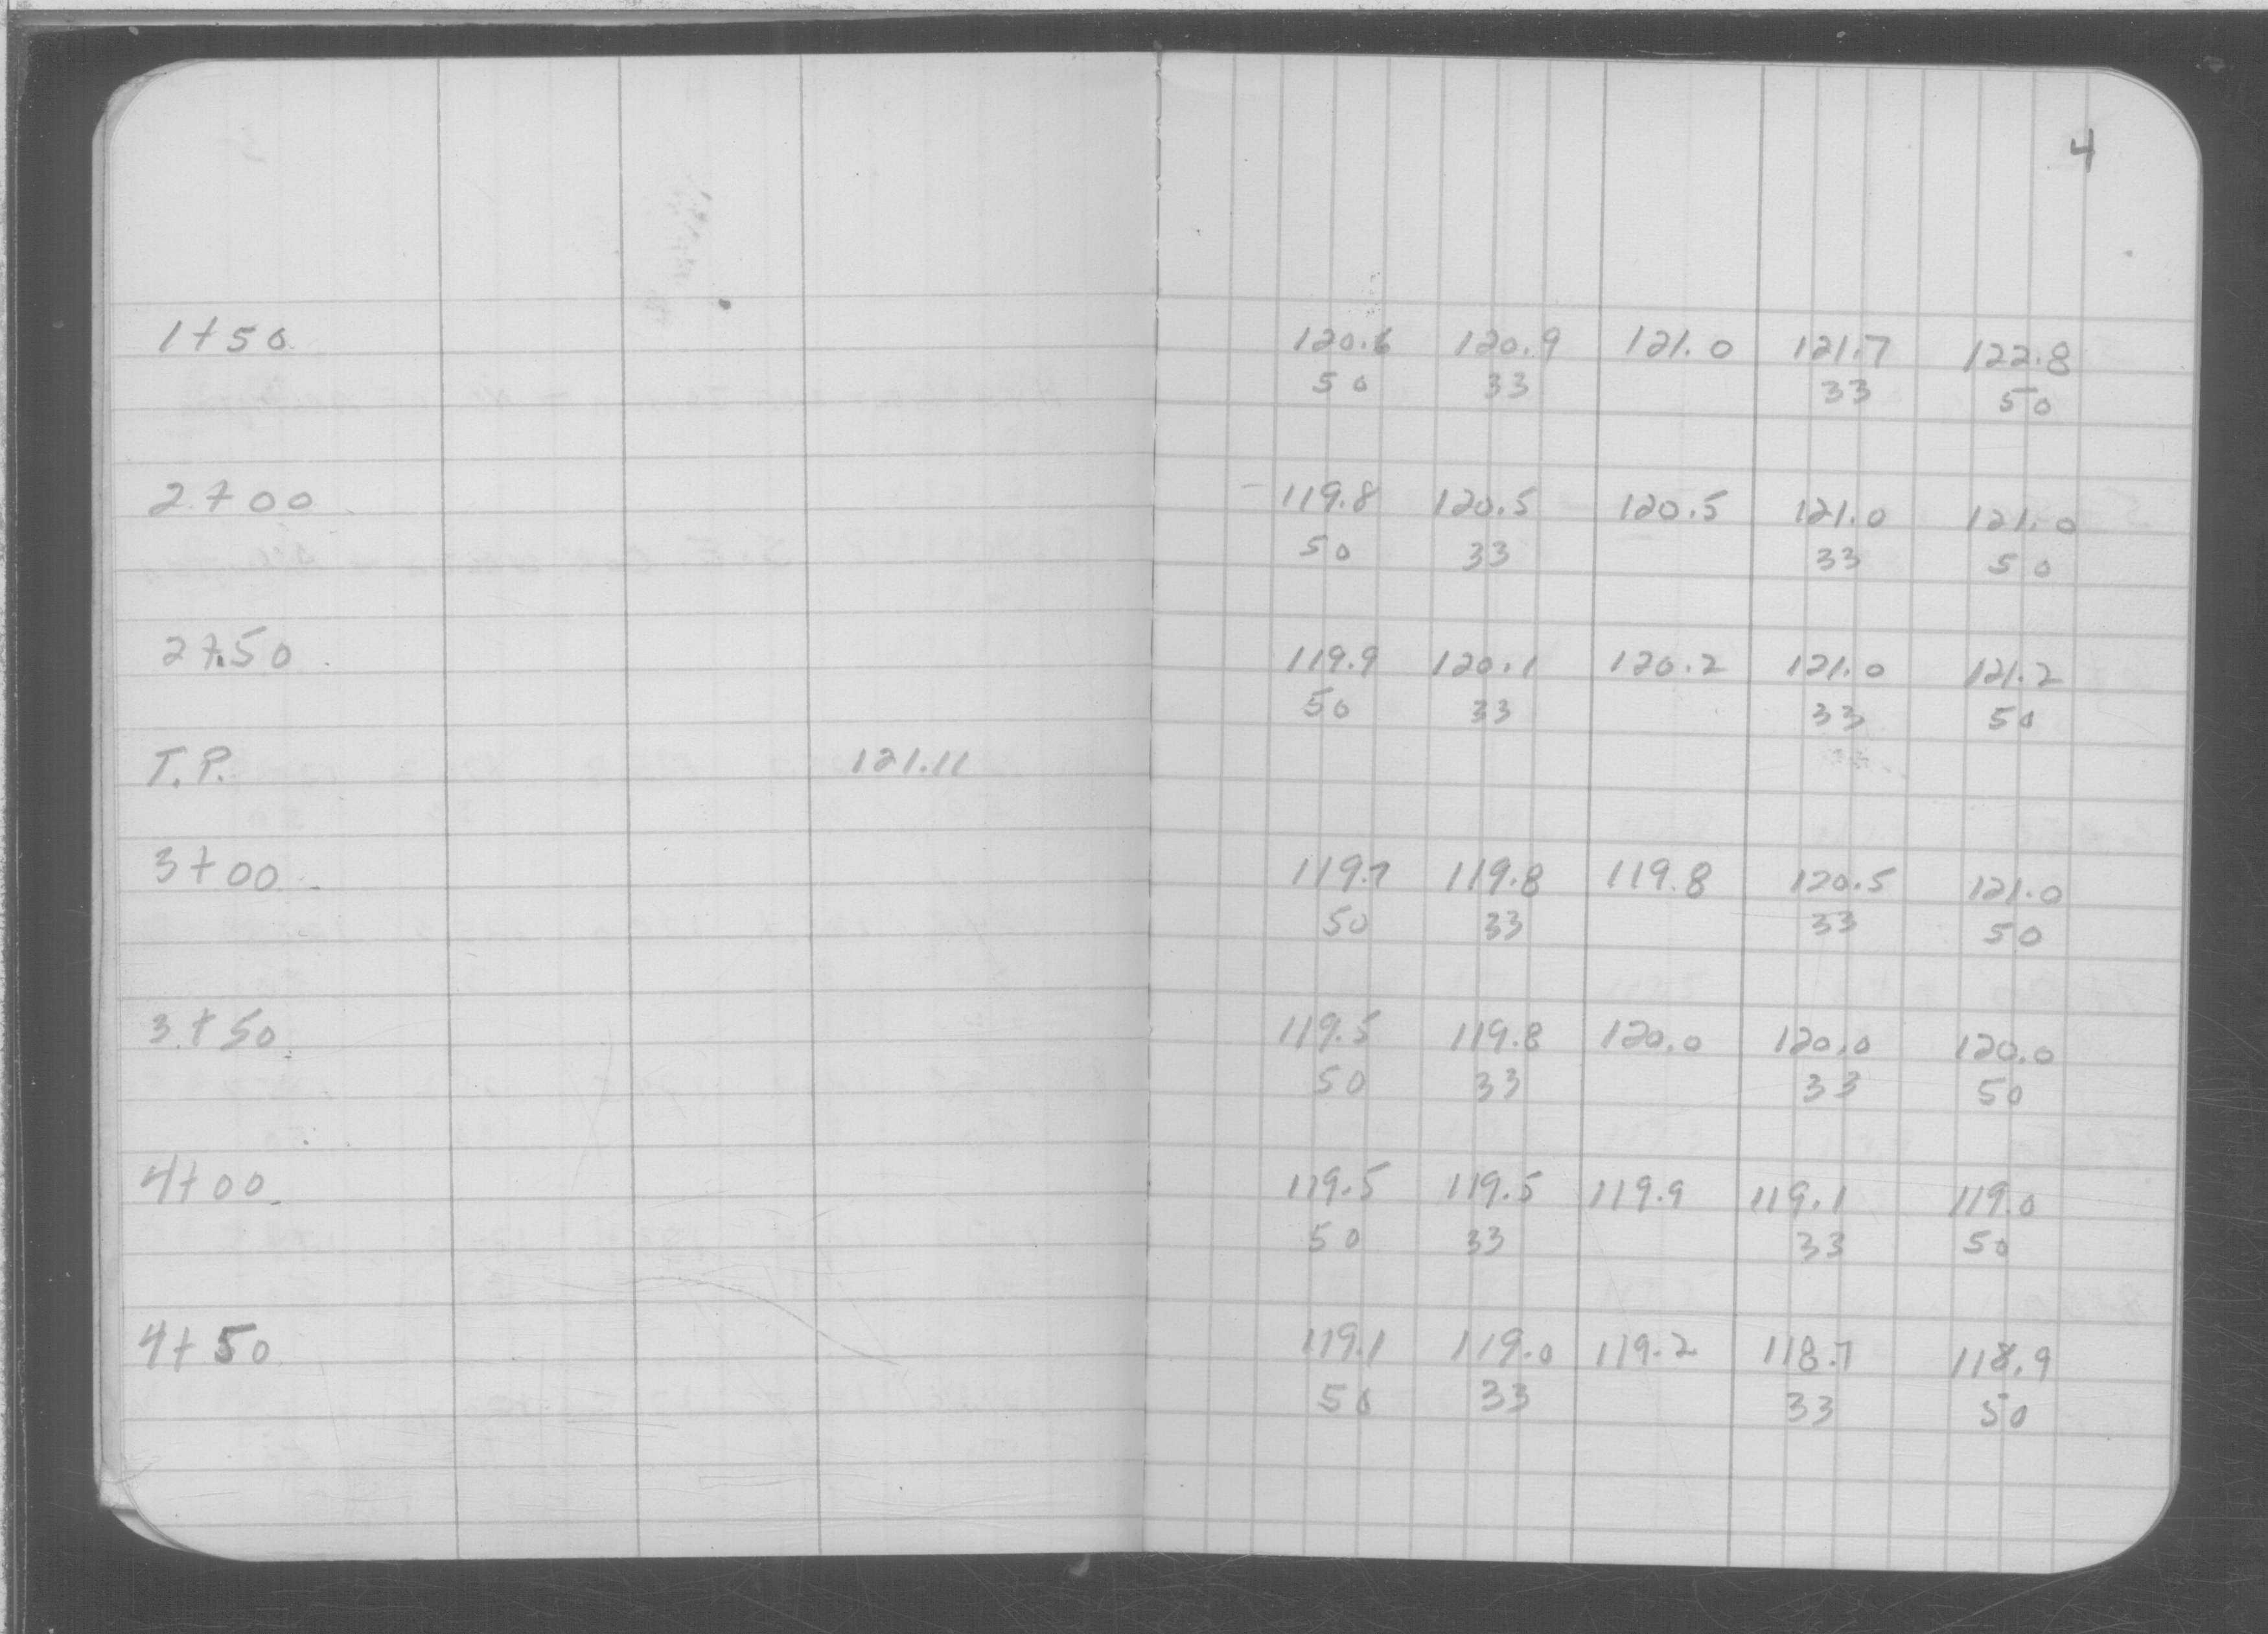 4
1+50 120.6 120.9 121.0 121.7 122.8
50 33 33 50
2+00 119.8 120.5 120.5 121.0 121.0
50 33 33 50
2+50 119.9 120.1 120.2 121.0 121.2
50 33 33 50
T.P. 121.11
3+00 119.7 119.8 119.8 120.5 121.0
50 33 33 50
3+50 119.5 119.8 120.0 120.0 120.0
50 33 33 50
4+00 119.5 119.5 119.9 119.1 119.0
50 33 33 50
4+50 119.1 119.0 119.2 118.7 118.9
50 33 33 50